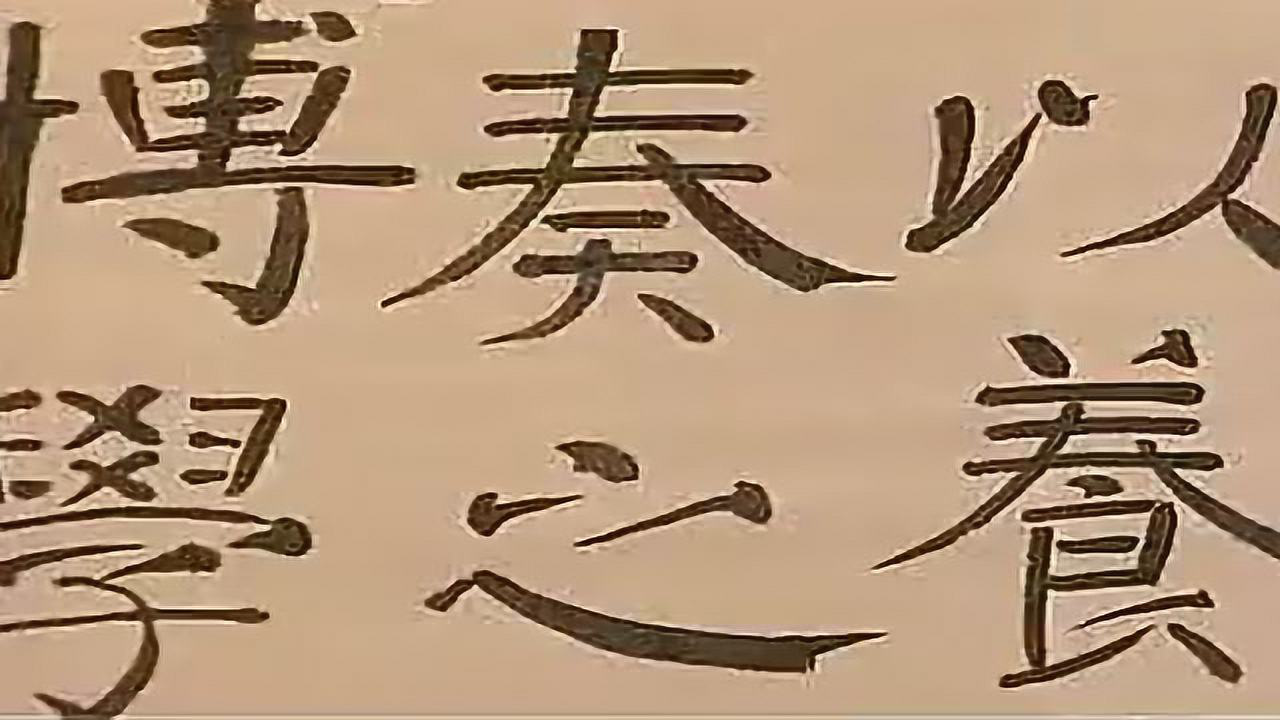 以養
奏之
博學